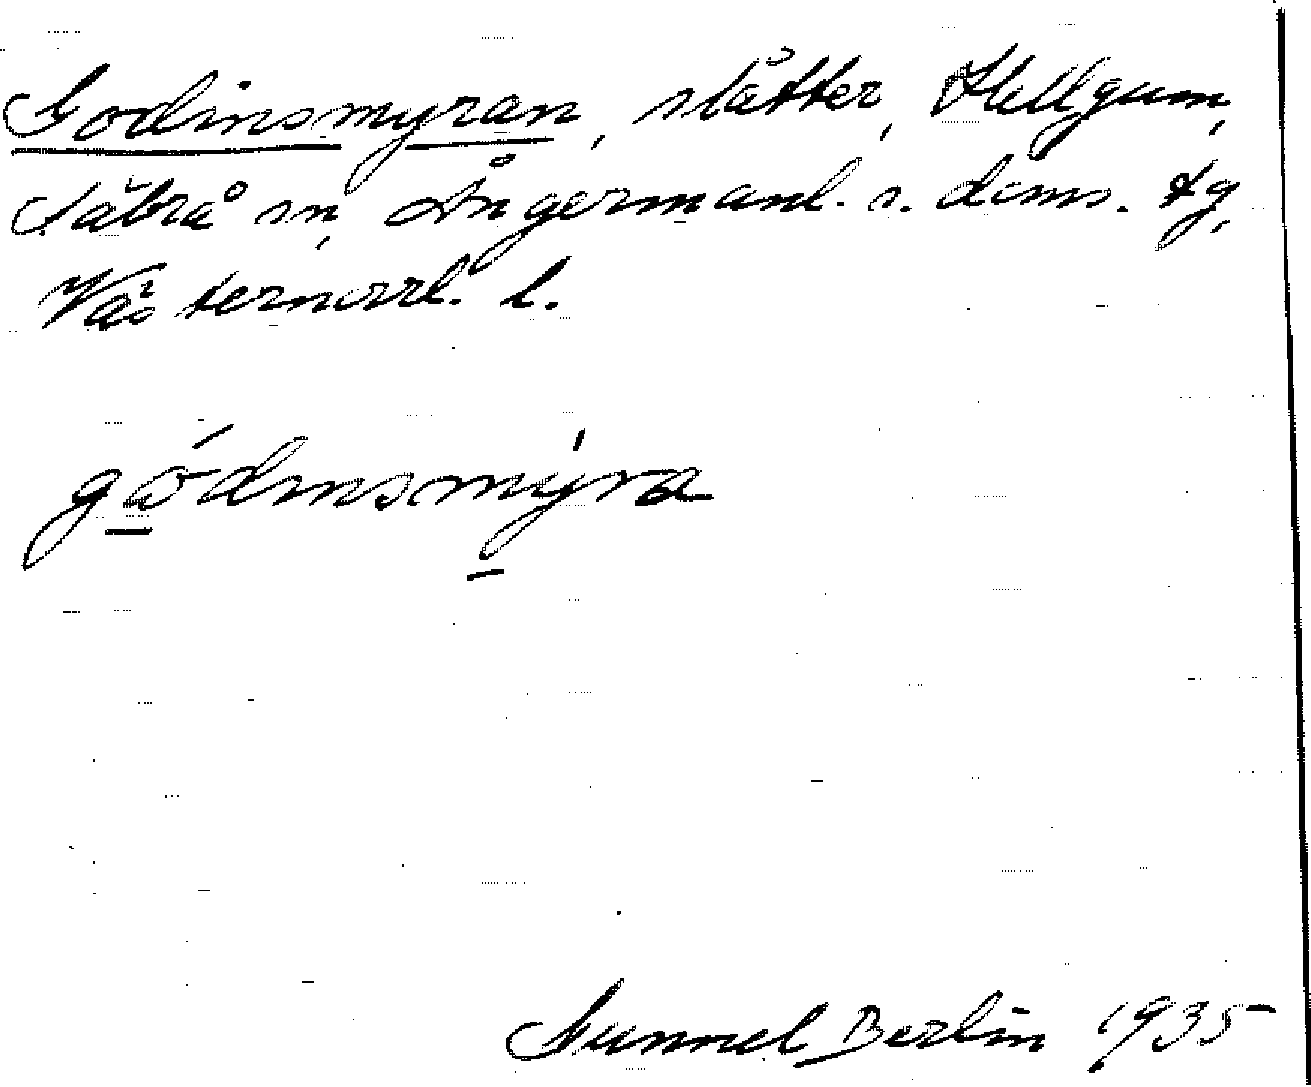 Godinsmyran, slåtter, Hellgum,
Säbrå sn, Ångermanl. s. doms. tg,
Västernorrl. l.
gódinsmýra
Gunnel Berlin 1935